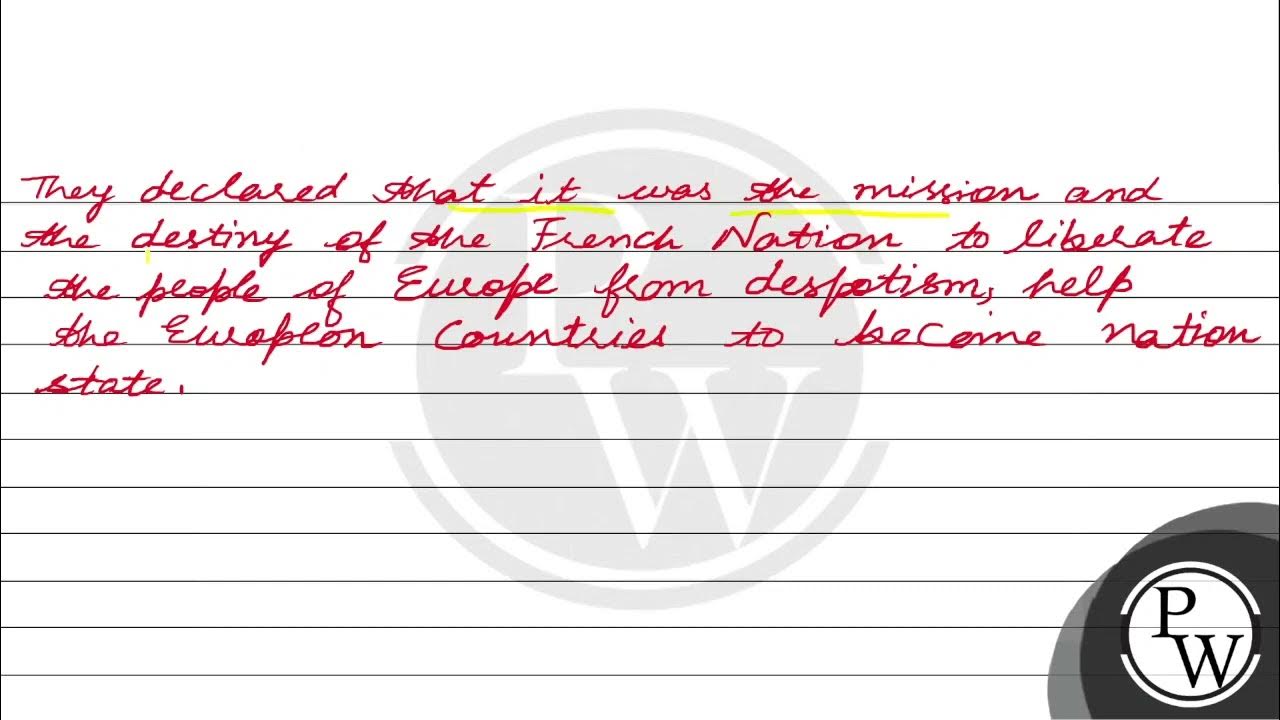 They declared that it was the mission and
the destiny of the French Nation to liberate
the people of Europe from despotism, help
the European Countries to become nation
state.
PW
PW